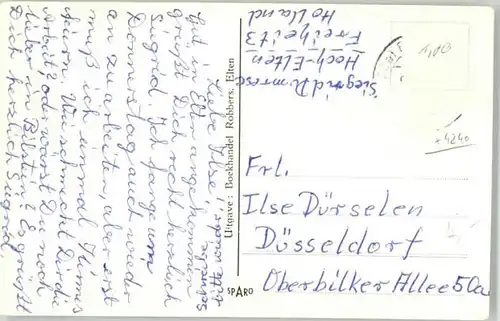 Liebe Ilse!
Gut in Elten angekommen
grüßt Dich recht herzlich
Sigrid. Ich fange am
Donnerstag auch wieder
an zu arbeiten, aber erst
muß ich einmal
feiern. Wie schmeckt Dir die
Arbeit? oder wärst Du noch
lieber in Bilstein? Es grüßt
Dich herzlich Sigrid.
bitte wieder
schreiben
Uitgave: Boekhandel Robbers, Elten
SPARO
Siegrid
Hoch-Elten
Freiheit 3
Holland
1,00
4240
Frl.
Ilse Dürselen
Düsseldorf
Oberbilker Allee 50a